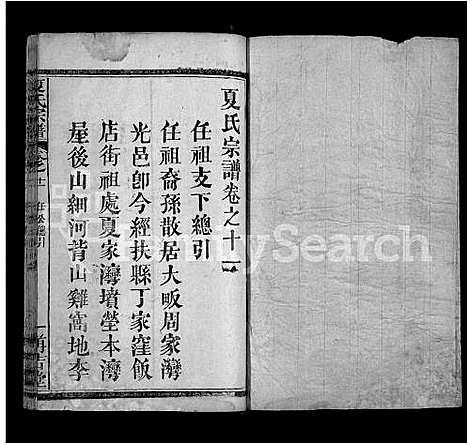 夏氏宗譜卷之十一
任祖支下總引
任祖裔孫散居大畈周家灣
光邑卽今經扶縣丁家窪飯
店街祖處夏家灣墳塋本灣
屋後山細河背山雞窩地李
夏氏宗譜
任公總引
MySearch